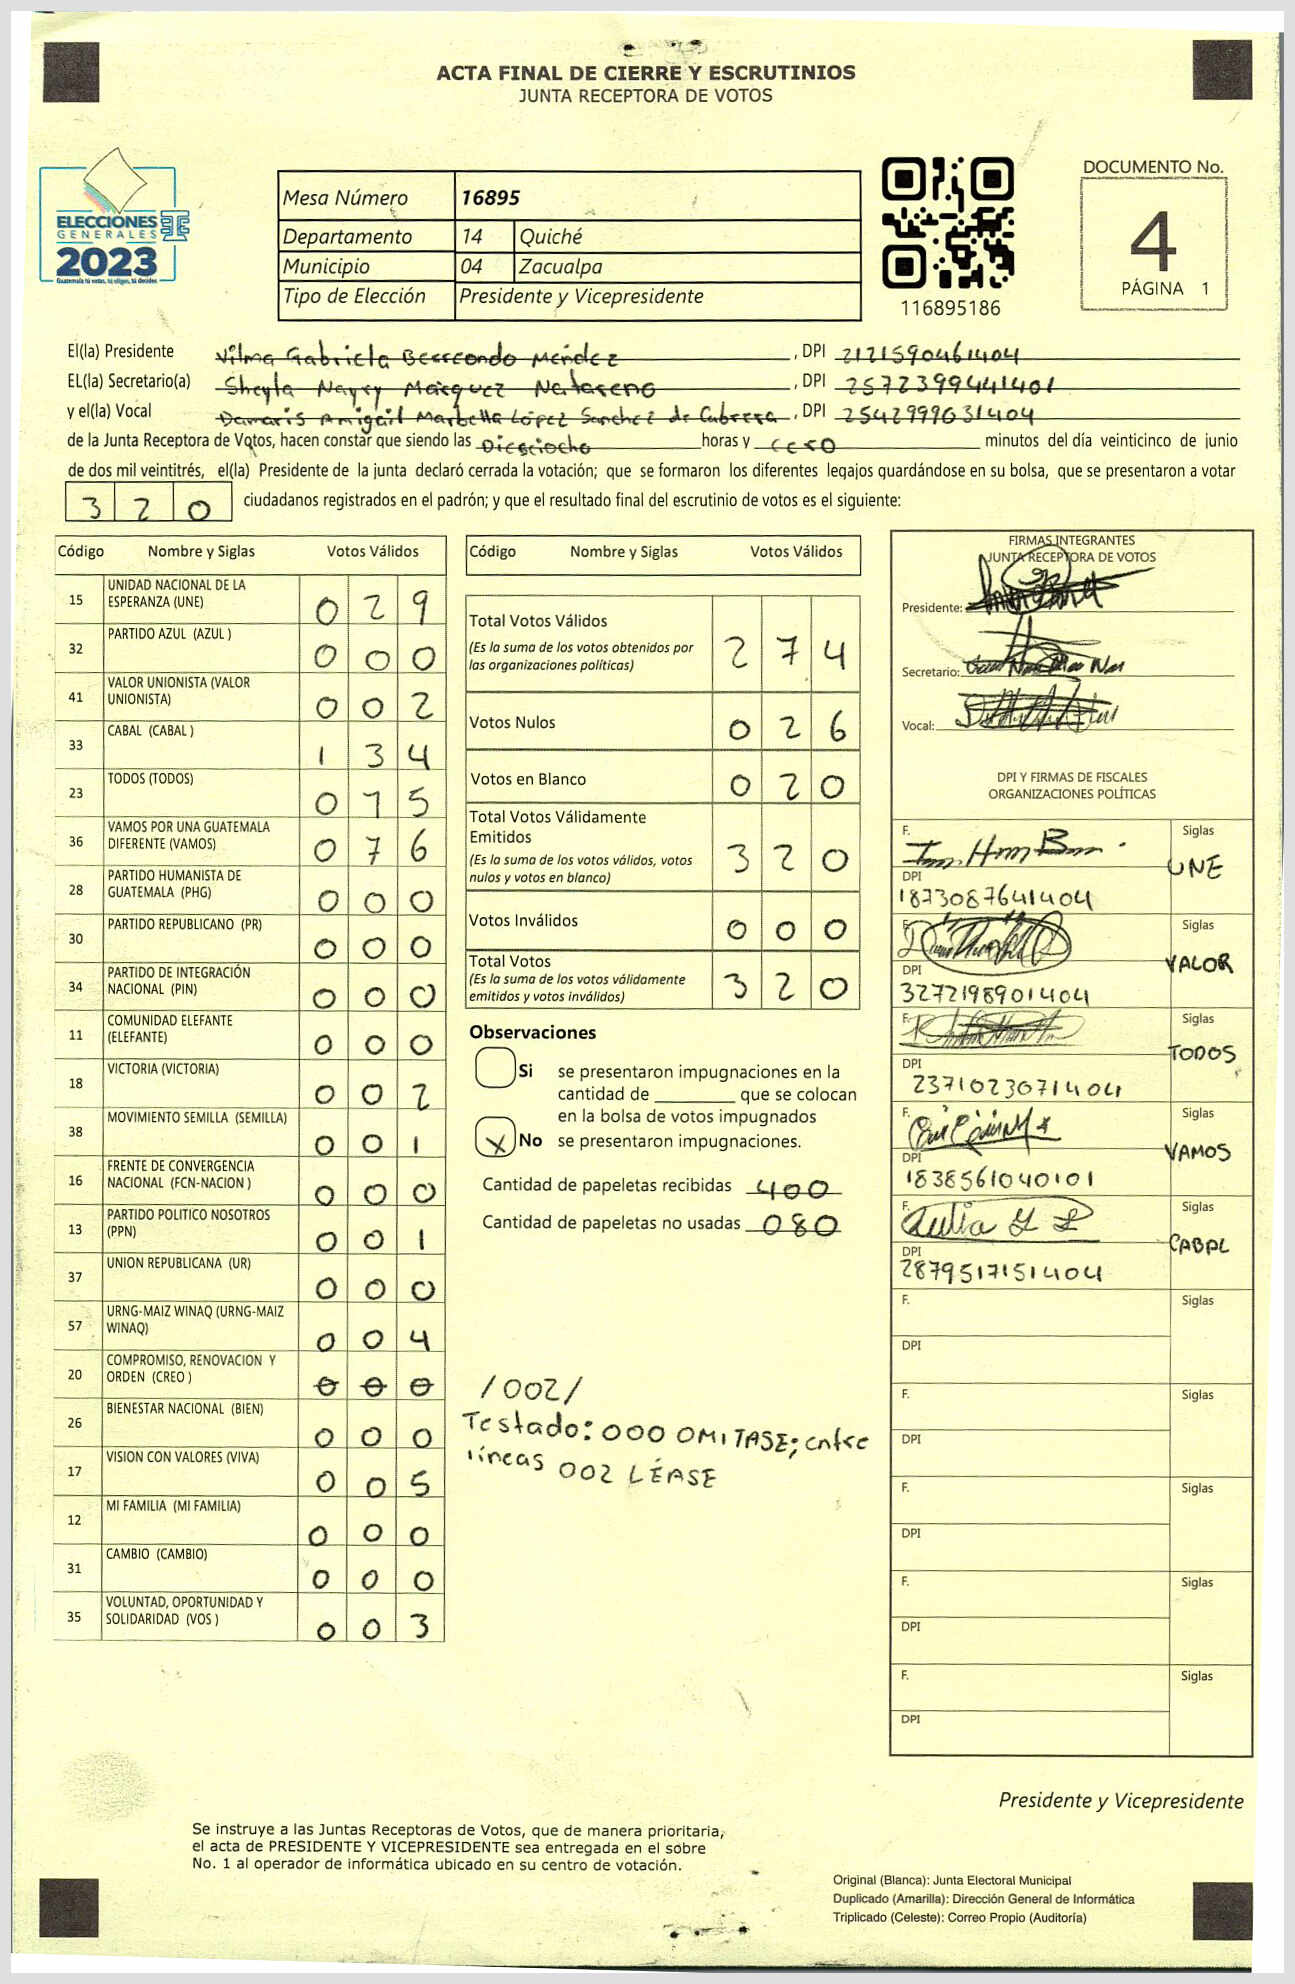 ACTA FINAL DE CIERRE Y ESCRUTINIOS
JUNTA RECEPTORA DE VOTOS
ELECCIONES
GENERALES
2023
Guatemala tú votas, tú eliges, tú decides
Mesa Número 16895
Departamento 14 Quiché
Municipio 04 Zacualpa
Tipo de Elección Presidente y Vicepresidente
116895186
DOCUMENTO No.
4
PÁGINA 1
El(la) Presidente Vilma Gabriela Berreondo Méndez, DPI 2121590461404
EL(la) Secretario(a) Sheyla Naysy Márquez Natareno, DPI 2572399441401
y el(la) Vocal Damaris Amigail Marbella López Sanchez de Cabrera, DPI 2542999631404
de la Junta Receptora de Votos, hacen constar que siendo las Dieciocho horas y cero minutos del día veinticinco de junio
de dos mil veintitrés, el(la) Presidente de la junta declaró cerrada la votación; que se formaron los diferentes legajos guardándose en su bolsa, que se presentaron a votar
320 ciudadanos registrados en el padrón; y que el resultado final del escrutinio de votos es el siguiente:
Código Nombre y Siglas Votos Válidos
15 UNIDAD NACIONAL DE LA ESPERANZA (UNE) 029
32 PARTIDO AZUL (AZUL ) 000
41 VALOR UNIONISTA (VALOR UNIONISTA) 002
33 CABAL (CABAL ) 134
23 TODOS (TODOS) 015
36 VAMOS POR UNA GUATEMALA DIFERENTE (VAMOS) 076
28 PARTIDO HUMANISTA DE GUATEMALA (PHG) 000
30 PARTIDO REPUBLICANO (PR) 000
34 PARTIDO DE INTEGRACIÓN NACIONAL (PIN) 000
11 COMUNIDAD ELEFANTE (ELEFANTE) 000
18 VICTORIA (VICTORIA) 002
38 MOVIMIENTO SEMILLA (SEMILLA) 001
16 FRENTE DE CONVERGENCIA NACIONAL (FCN-NACION ) 000
13 PARTIDO POLITICO NOSOTROS (PPN) 001
37 UNION REPUBLICANA (UR) 000
57 URNG-MAIZ WINAQ (URNG-MAIZ WINAQ) 004
20 COMPROMISO, RENOVACION Y ORDEN (CREO ) 000
26 BIENESTAR NACIONAL (BIEN) 000
17 VISION CON VALORES (VIVA) 005
12 MI FAMILIA (MI FAMILIA) 000
31 CAMBIO (CAMBIO) 000
35 VOLUNTAD, OPORTUNIDAD Y SOLIDARIDAD (VOS ) 003
Código Nombre y Siglas Votos Válidos
Total Votos Válidos 274
(Es la suma de los votos obtenidos por
las organizaciones políticas)
Votos Nulos 026
Votos en Blanco 020
Total Votos Válidamente
Emitidos 320
(Es la suma de los votos válidos, votos
nulos y votos en blanco)
Votos Inválidos 000
Total Votos 320
(Es la suma de los votos válidamente
emitidos y votos inválidos)
Observaciones
Si se presentaron impugnaciones en la
cantidad de ________ que se colocan
en la bolsa de votos impugnados
X No se presentaron impugnaciones.
Cantidad de papeletas recibidas 400
Cantidad de papeletas no usadas 080
/002/
Testado: 000 OMITASE; entre
líneas 002 LÉASE
FIRMAS INTEGRANTES
JUNTA RECEPTORA DE VOTOS
Presidente:
Secretario:
Vocal:
DPI Y FIRMAS DE FISCALES
ORGANIZACIONES POLÍTICAS
F. Siglas UNE
DPI
1873087641404
F. Siglas VALOR
DPI
3272198901404
F. Siglas TODOS
DPI
2371023071404
F. Siglas VAMOS
DPI
1838561040101
F. Siglas CABAL
DPI
2879517151404
F. Siglas
DPI
F. Siglas
DPI
F. Siglas
DPI
F. Siglas
DPI
F. Siglas
DPI
Presidente y Vicepresidente
Se instruye a las Juntas Receptoras de Votos, que de manera prioritaria,
el acta de PRESIDENTE Y VICEPRESIDENTE sea entregada en el sobre
No. 1 al operador de informática ubicado en su centro de votación.
Original (Blanca): Junta Electoral Municipal
Duplicado (Amarilla): Dirección General de Informática
Triplicado (Celeste): Correo Propio (Auditoría)